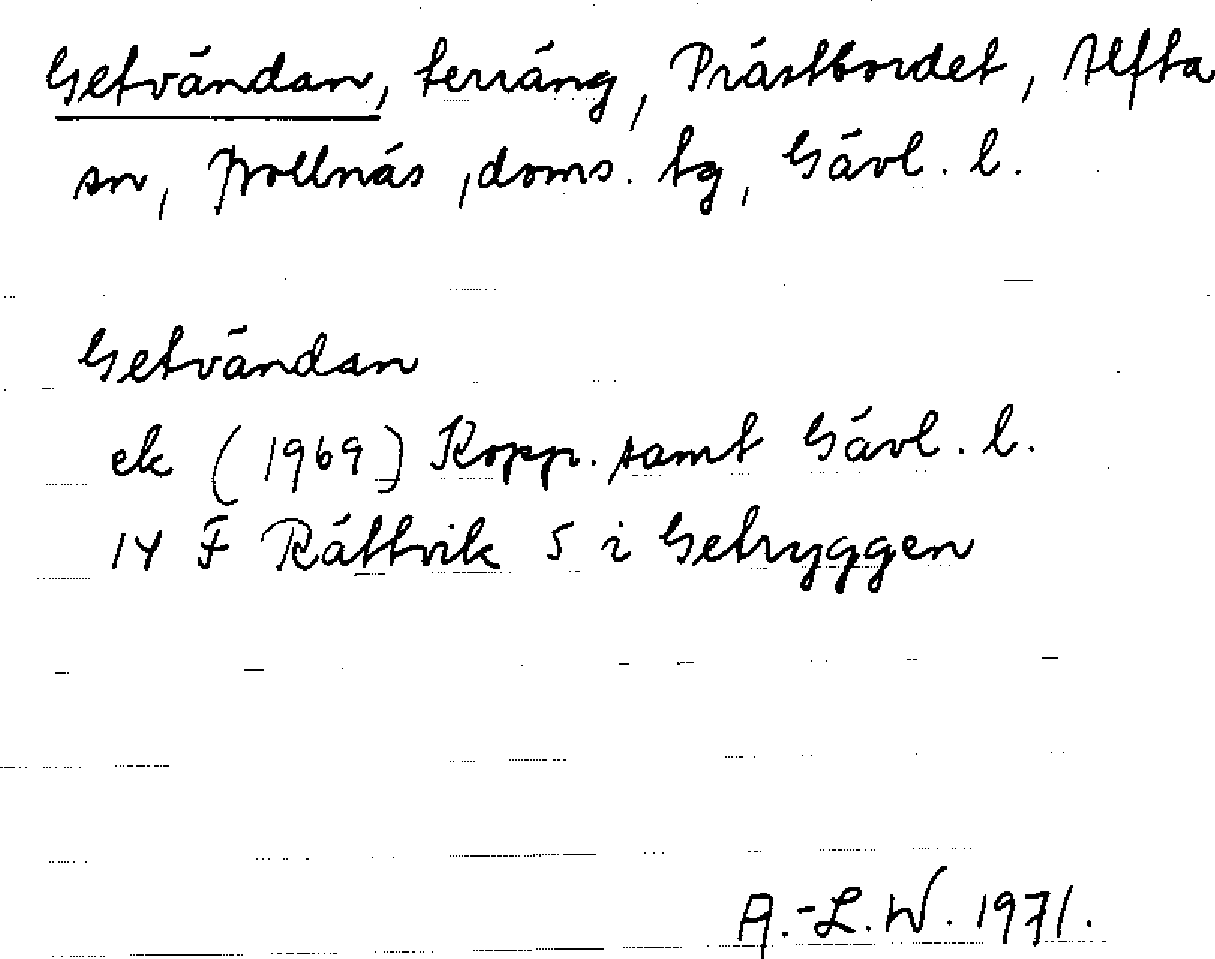 Getvändan, terräng, Prästbordet, Alfta
sn, Bollnäs, doms. tg, Gävl. l.
Getvändan
ek (1969) Kopp. samt Gävl. l.
14 F Rättvik 5 i Getryggen
A.-L.W. 1971.